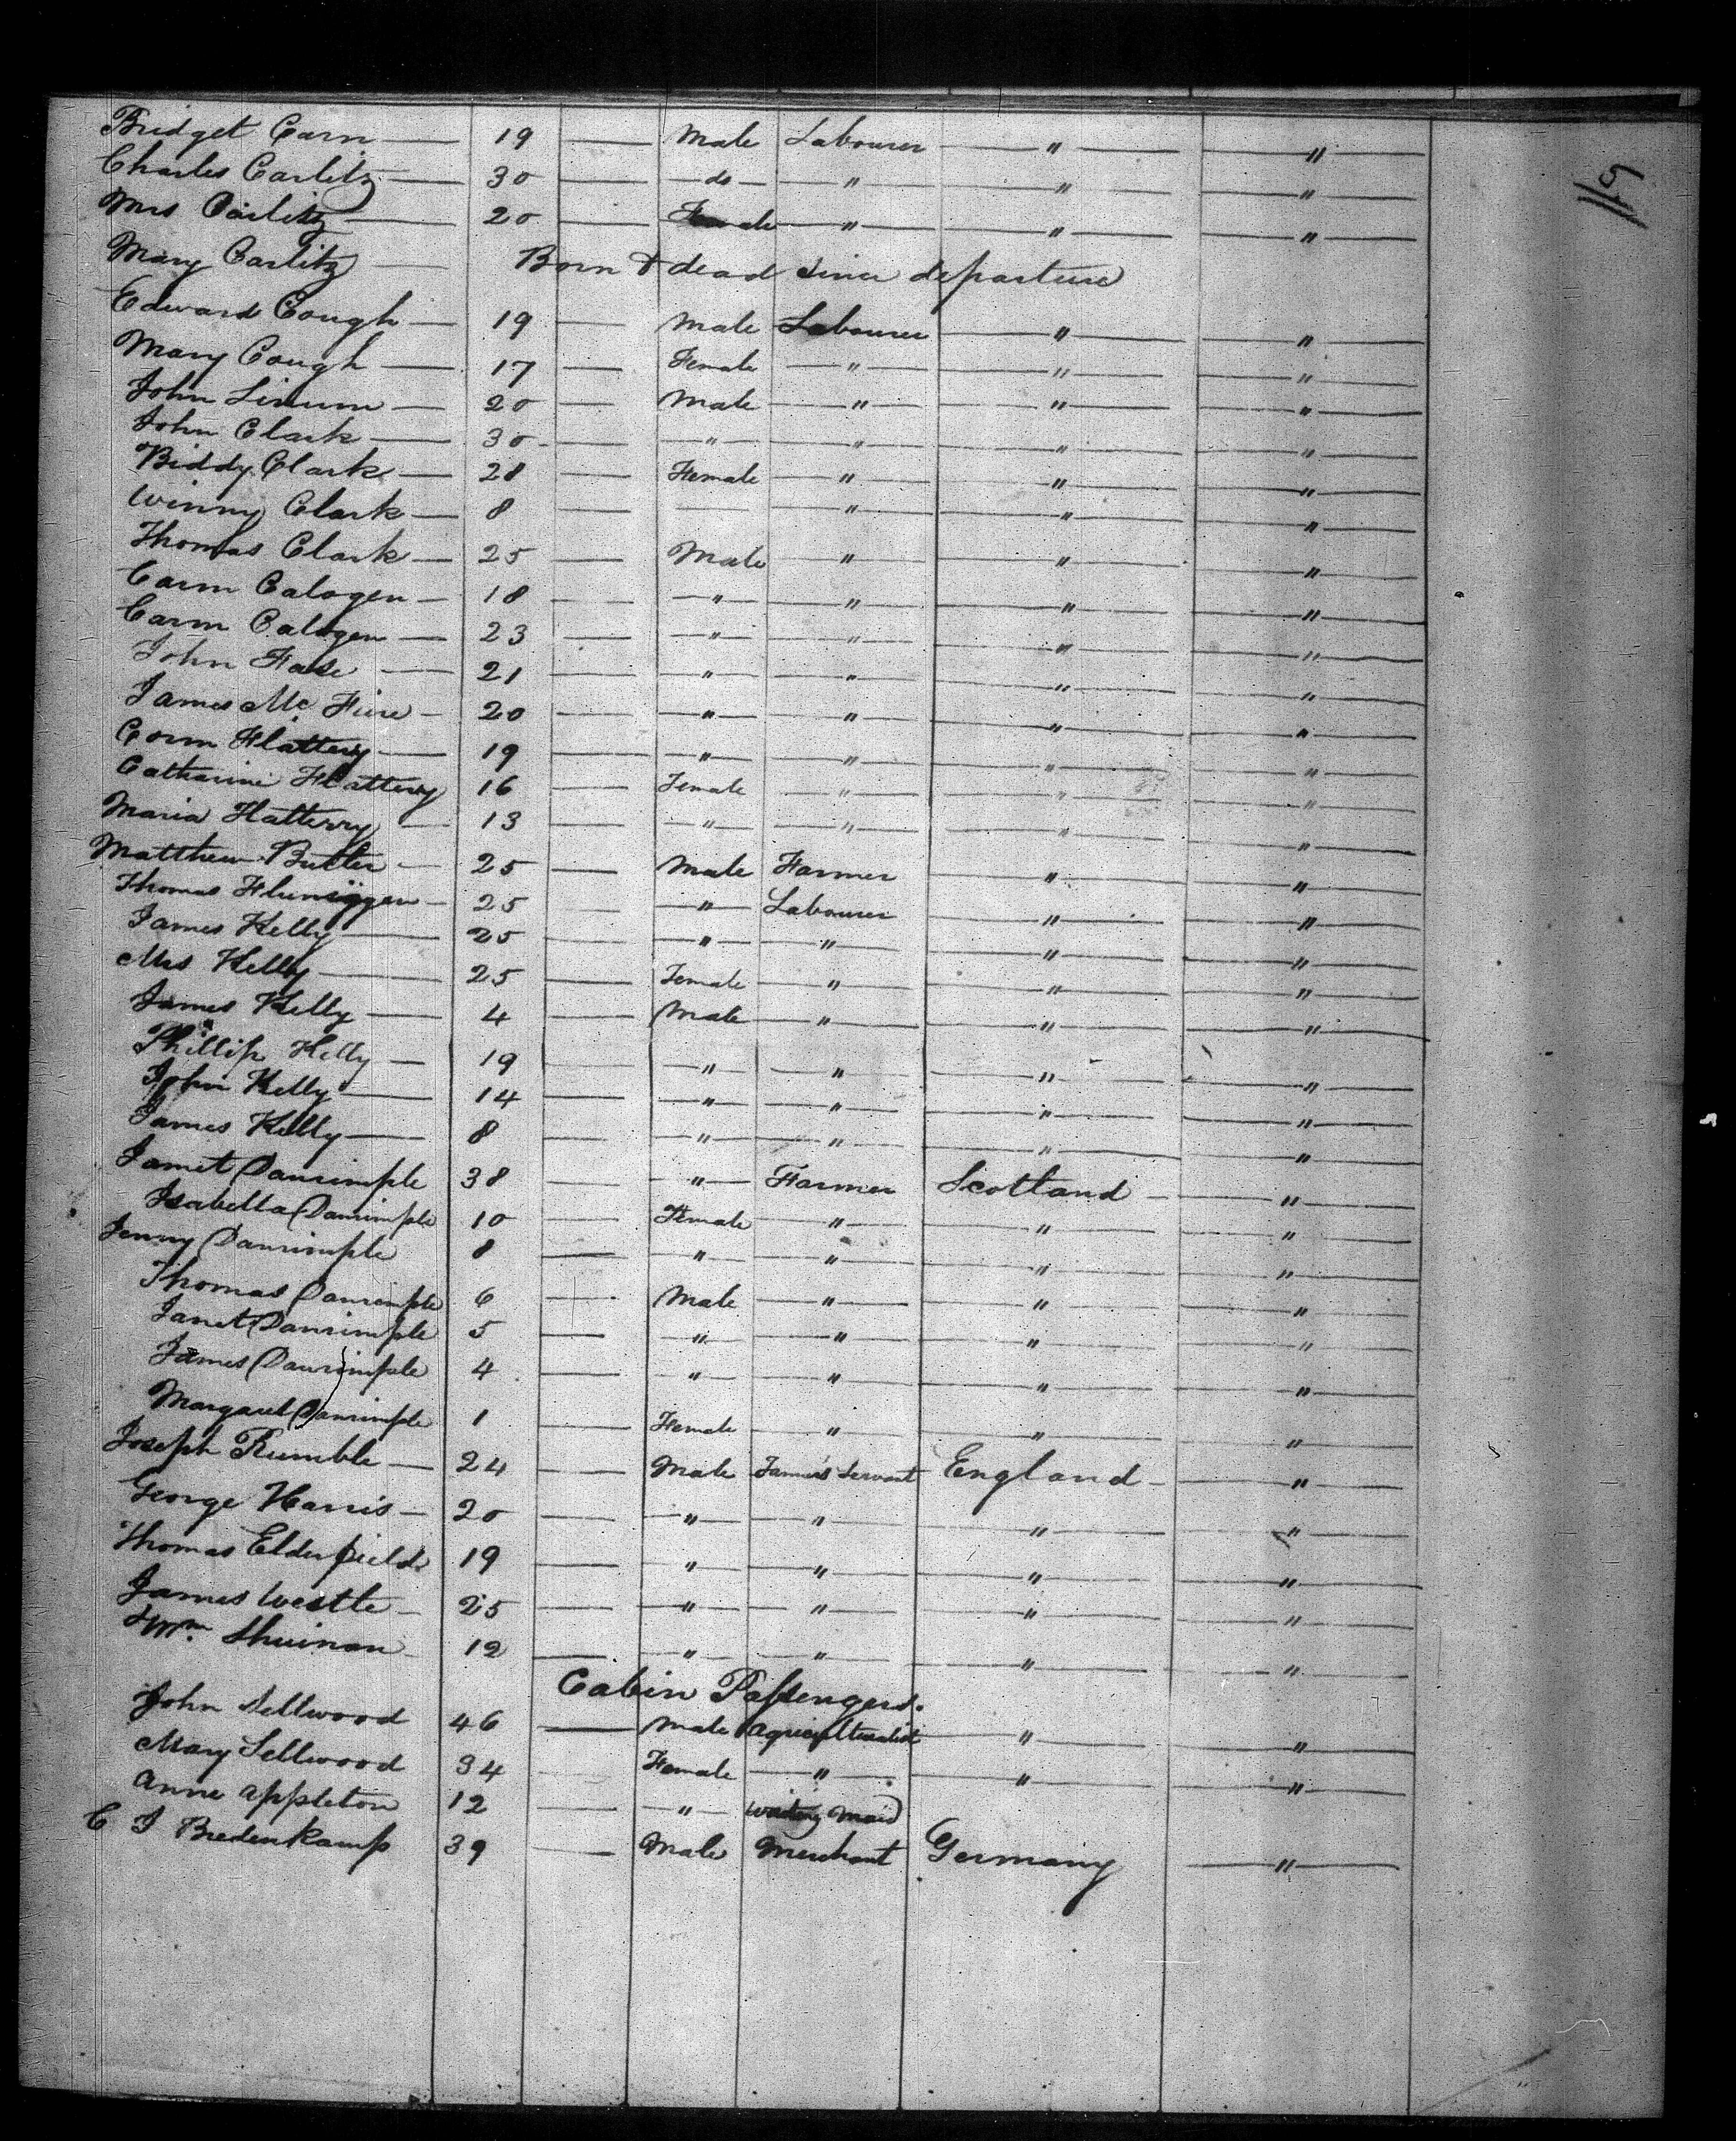 119
Bridget Carn — 19 — Male Labourer — " — — " —
Charles Carlitz — 30 — — do — — " — — " — — " —
Mrs Carlitz — 20 — Female — " — — " — — " —
Mary Carlitz — Born & dead since departure
Edward Cough — 19 — Male Labourer — " — — " —
Mary Cough — 17 — Female — " — — " — — " —
John — 20 — Male — " — — " — — " —
John Clark — 30 — — " — — " — — " — — " —
Biddy Clark — 28 — Female — " — — " — — " —
Winny Clark — 8 — — — " — — " — — " —
Thomas Clark — 25 — Male — " — — " — — " —
Carm Calogen — 18 — — " — — " — — " — — " —
Carm Calogen — 23 — — " — — " — — " — — " —
John — 21 — — " — — " — — " — — " —
James Mc — 20 — — " — — " — — " — — " —
Corm Flattery — 19 — — " — — " — — " — — " —
Catharine Flattery 16 — Female — " — — " — — " —
Maria Flatterry — 13 — — " — — " — — " — — " —
Matthew Butler — 25 — Male Farmer — " — — " —
Thomas — 25 — — " — Labourer — " — — " —
James Kelly — 25 — — " — — " — — " — — " —
Mrs Kelly — 25 — Female — " — — " — — " —
James Kelly — 4 — Male — " — — " — — " —
Phillip Kelly — 19 — — " — — " — — " — — " —
John Kelly — 14 — — " — — " — — " — — " —
James Kelly — 8 — — " — — " — — " — — " —
Jamet Daurimple 38 — — " — Farmer Scotland — — " —
Isabella Daurimple 10 — Female — " — — " — — " —
Jenny Daurimple 8 — — " — — " — — " — — " —
Thomas Daurimple 6 — Male — " — — " — — " —
Janet Daurimple 5 — — " — — " — — " — — " —
James Daurimple 4 — — " — — " — — " — — " —
Margaret Daurimple 1 — Female — " — — " — — " —
Joseph Rumble — 24 — Male Farmer's Servant England — — " —
George Harris — 20 — — " — — " — — " — — " —
Thomas Elderfield 19 — — " — — " — — " — — " —
James Westle — 25 — — " — — " — — " — — " —
Wm. 12 — — " — — " — — " — — " —
Cabin Passengers.
John Sellwood 46 — Male Agriculturalist — " — — " —
Mary Sellwood 34 — Female — " — — " — — " —
Anne Appleton 12 — — " — Waiting Maid
C J Bredenkamp 39 — Male Merchant Germany — " —